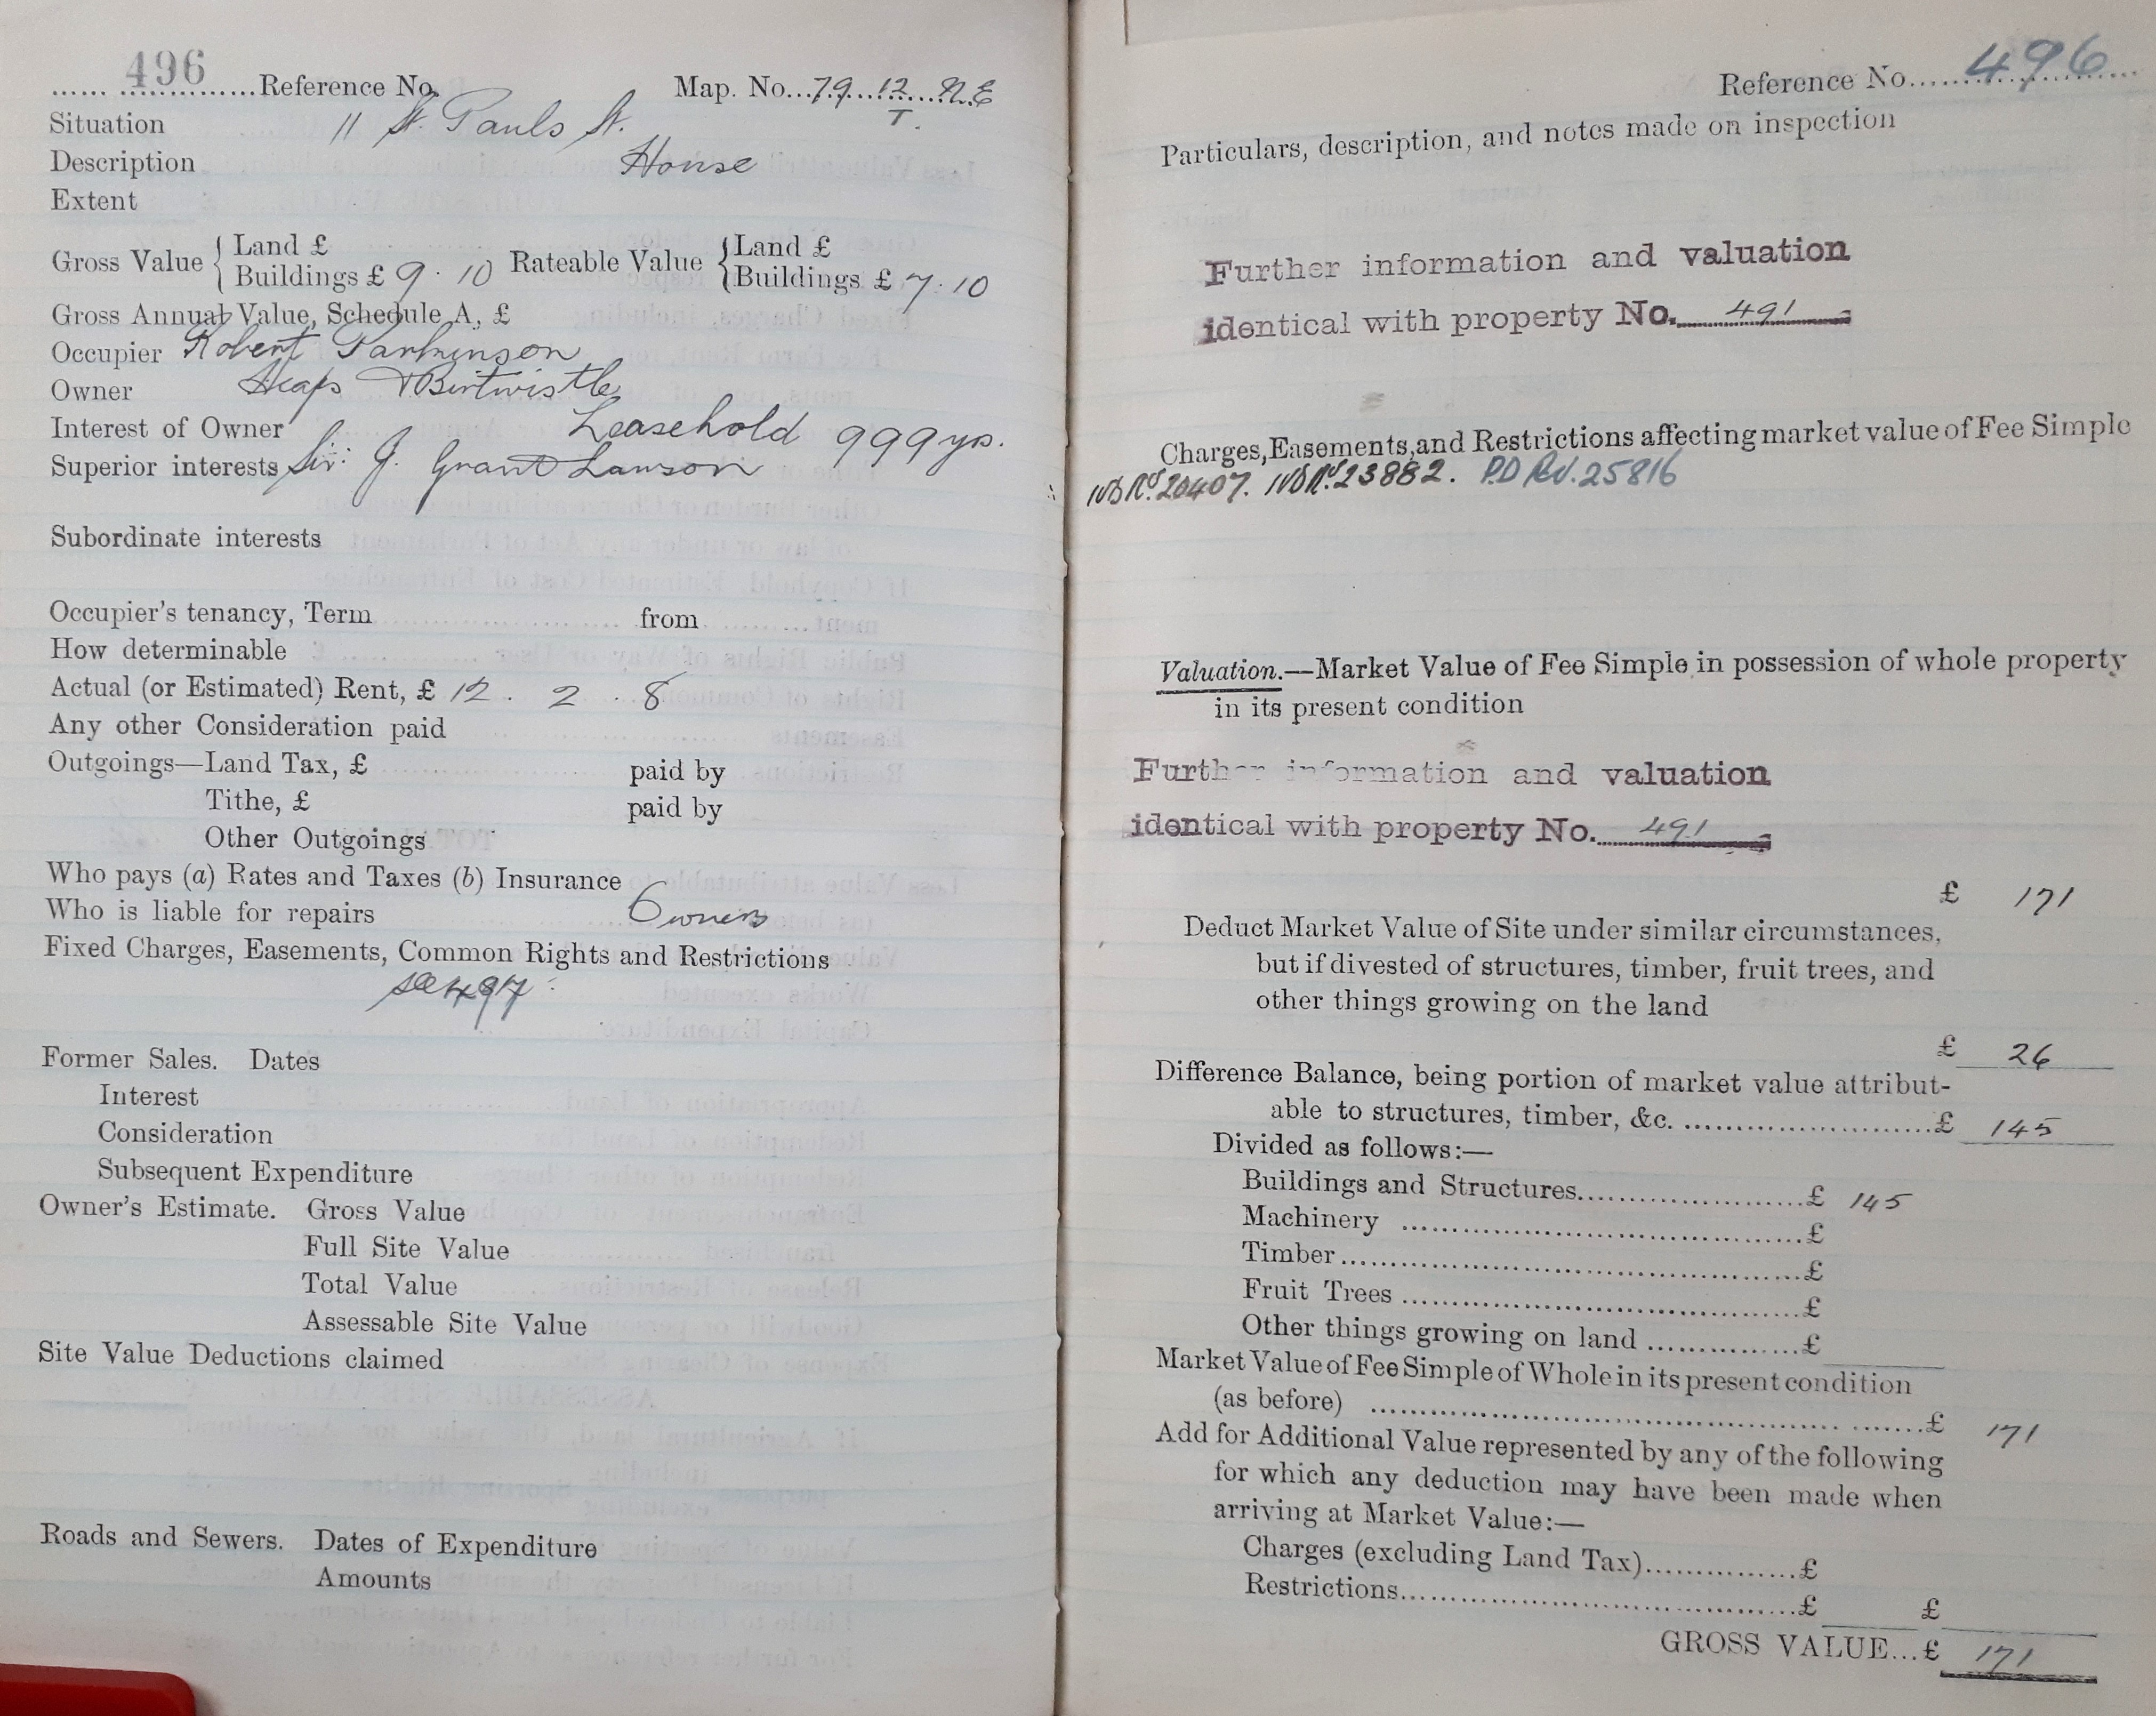 496 Reference No. Map. No. 79 12 N.E
T.
Situation 11 St. Pauls St.
Description House
Extent
Gross Value { Land £
Buildings £ 9 . 10 Rateable Value { Land £
Buildings £ 7 . 10
Gross Annual Value, Schedule A, £
Occupier Robert Parkinson
Owner Heaps & Birtwistle
Interest of Owner Leasehold 999 yrs.
Superior interests Sir J. Grant Lawson
Subordinate interests
Occupier's tenancy, Term from
How determinable
Actual (or Estimated) Rent, £ 12 . 2 . 8
Any other Consideration paid
Outgoings—Land Tax, £ paid by
Tithe, £ paid by
Other Outgoings
Who pays (a) Rates and Taxes (b) Insurance
Who is liable for repairs Owners
Fixed Charges, Easements, Common Rights and Restrictions
see 497
Former Sales. Dates
Interest
Consideration
Subsequent Expenditure
Owner's Estimate. Gross Value
Full Site Value
Total Value
Assessable Site Value
Site Value Deductions claimed
Roads and Sewers. Dates of Expenditure
Amounts
Reference No. 496
Particulars, description, and notes made on inspection
Further information and valuation
identical with property No. 491
Charges, Easements, and Restrictions affecting market value of Fee Simple
20407. 23882. P.D 25816
Valuation.—Market Value of Fee Simple in possession of whole property
in its present condition
Further information and valuation
identical with property No. 491
£ 171
Deduct Market Value of Site under similar circumstances,
but if divested of structures, timber, fruit trees, and
other things growing on the land
£ 26
Difference Balance, being portion of market value attribut-
able to structures, timber, &c. £ 145
Divided as follows:—
Buildings and Structures £ 145
Machinery £
Timber £
Fruit Trees £
Other things growing on land £
Market Value of Fee Simple of Whole in its present condition
(as before) £ 171
Add for Additional Value represented by any of the following
for which any deduction may have been made when
arriving at Market Value:—
Charges (excluding Land Tax) £
Restrictions £ £
GROSS VALUE...£ 171